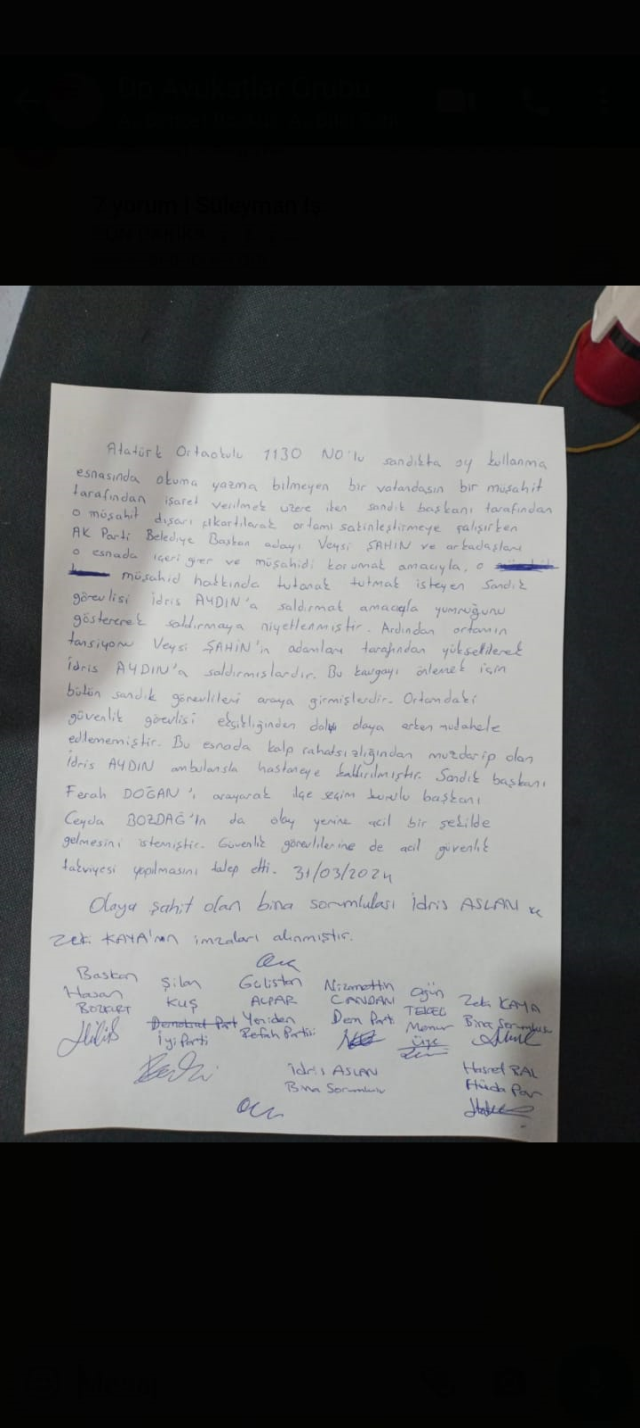 7 yorum | Süleyman
Atatürk Ortaokulu 1130 No'lu sandıkta oy kullanma
esnasında okuma yazma bilmeyen bir vatandaşın bir müşahit
tarafından işaret verilmek üzere iken sandık başkanı tarafından
o müşahit dışarı çıkartılarak ortamı sakinleştirmeye çalışırken
AK Parti Belediye Başkan adayı Veysi ŞAHİN ve arkadaşları
o esnada içeri girer ve müşahidi korumak amacıyla, o
müşahid hakkında tutanak tutmak isteyen Sandık
görevlisi İdris AYDIN'a saldırmak amacıyla yumruğunu
göstererek saldırmaya niyetlenmiştir. Ardından ortamın
tansiyonu Veysi ŞAHİN'in adamları tarafından yükseltilerek
İdris AYDIN'a saldırmışlardır. Bu kavgayı önlemek için
bütün sandık görevlileri araya girmişlerdir. Ortamdaki
güvenlik görevlisi eksikliğinden dolayı olaya erken müdahele
edilememiştir. Bu esnada kalp rahatsızlığından muzdarip olan
İdris AYDIN ambulansla hastaneye kaldırılmıştır. Sandık başkanı
Ferah DOĞAN'ı arayarak ilçe seçim kurulu başkanı
Ceyda BOZDAĞ'ın da olay yerine acil bir şekilde
gelmesini istemiştir. Güvenlik görevlilerine de acil güvenlik
takviyesi yapılmasını talep etti. 31/03/2024
Olaya şahit olan bina sorumlulası İdris ASLAN ve
Zeki KAYA'nın imzaları alınmıştır.
Başkan Şilan Gülistan Nizamettin Ogün Zeki KAYA
Hasan KUŞ ALPAR CANDAN TEKEL Bina Sorumlusu
BOZKURT Demokrat Part Yeniden Dem Parti Memur
İyi Parti Refah Partisi Üye
İdris ASLAN
Bina Sorumlulu
Hasret BAL
Hüda Par